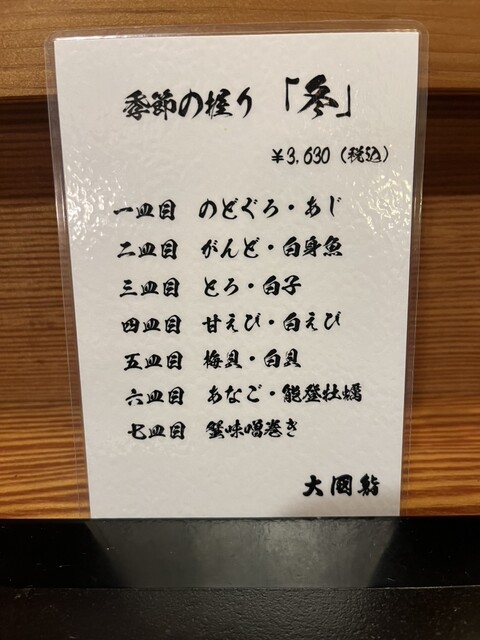 季節の握り「冬」
¥3,630(税込)
一皿目 のどぐろ・あじ
二皿目 がんど・白身魚
三皿目 とろ・白子
四皿目 甘えび・白えび
五皿目 梅貝・白貝
六皿目 あなご・能登牡蠣
七皿目 蟹味噌巻き
大國鮨